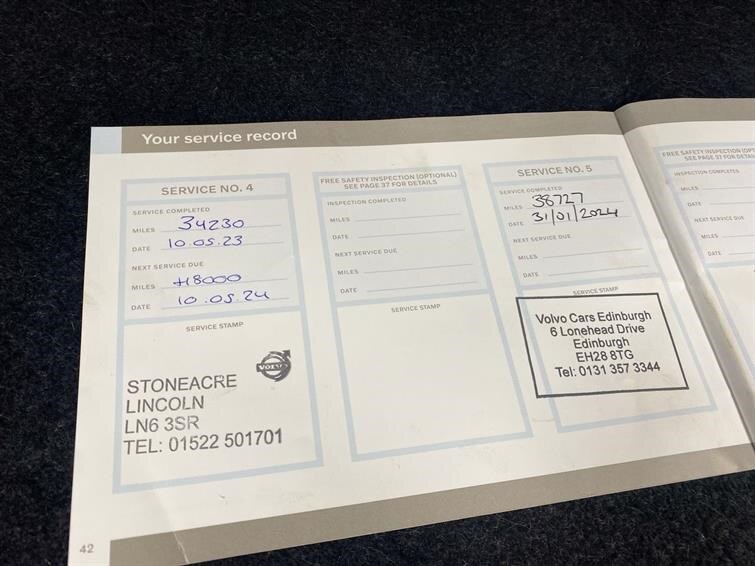 Your service record
SERVICE NO. 4
SERVICE COMPLETED
MILES 34230
DATE 10.05.23
NEXT SERVICE DUE
MILES +18000
DATE 10.05.24
SERVICE STAMP
VOLVO
STONEACRE
LINCOLN
LN6 3SR
TEL: 01522 501701
FREE SAFETY INSPECTION (OPTIONAL)
SEE PAGE 37 FOR DETAILS
INSPECTION COMPLETED
MILES
DATE
NEXT SERVICE DUE
MILES
DATE
SERVICE STAMP
SERVICE NO. 5
SERVICE COMPLETED
MILES 38727
DATE 31/01/2024
NEXT SERVICE DUE
MILES
DATE
SERVICE STAMP
Volvo Cars Edinburgh
6 Lonehead Drive
Edinburgh
EH28 8TG
Tel: 0131 357 3344
FREE SAFETY INSPECTION
SEE PAGE 37 FOR
INSPECTION COMPLETED
MILES
DATE
NEXT SERVICE DUE
MILES
DATE
42